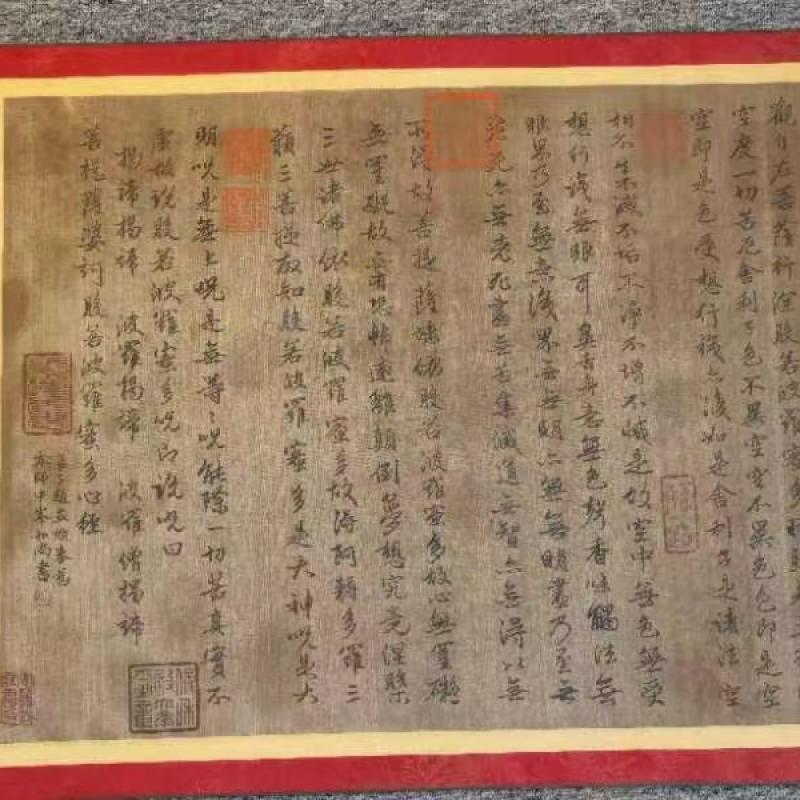 觀自在菩薩行深般若波羅蜜多時照見五
空度一切苦厄舍利子色不異空空不異色色即是空
空即是色受想行識亦復如是舍利子是諸法空
相不生不滅不垢不淨不增不減是故空中無色無受
想行識無眼耳鼻舌身意無色聲香味觸法無
眼界乃至無意識界無無明亦無無明盡乃至無
老死亦無老死盡無苦集滅道無智亦無得以無
所得故菩提薩埵依般若波羅蜜多故心無罣礙
無罣礙故無有恐怖遠離顛倒夢想究竟涅槃
三世諸佛依般若波羅蜜多故得阿耨多羅三
藐三菩提故知般若波羅蜜多是大神呪是大
明呪是無上呪是無等〻呪能除一切苦真實不
虛故說般若波羅蜜多呪即說呪曰
揭諦揭諦 波羅揭諦 波羅僧揭諦
菩提薩婆訶般若波羅蜜多心經
弟子趙孟頫奉為
本師中峯和尚書